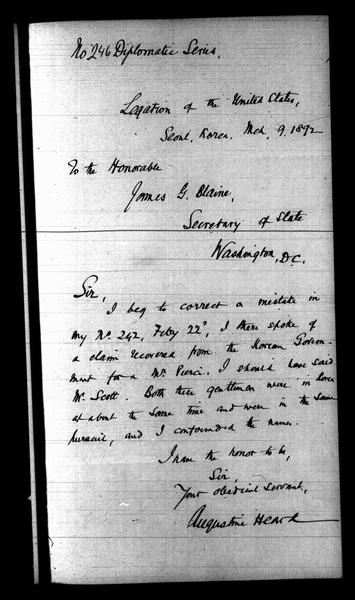 No 246 Diplomatic Series.
Legation of the United States,
Seoul, Korea, Mch. 9. 1892
To the Honorable
James G. Blaine,
Secretary of State
Washington, D.C.
Sir,
I beg to correct a mistake in
my No. 242, Feby 22d, I there spoke of
a claim recovered from the Korean Govern-
ment for a Mr. Pierce. I should have said
Mr. Scott. Both these gentlemen were in Korea
at about the same time and were in the same
pursuit, and I confounded the names.
I have the honor to be,
Sir,
Your obedient servant,
Augustine Heard